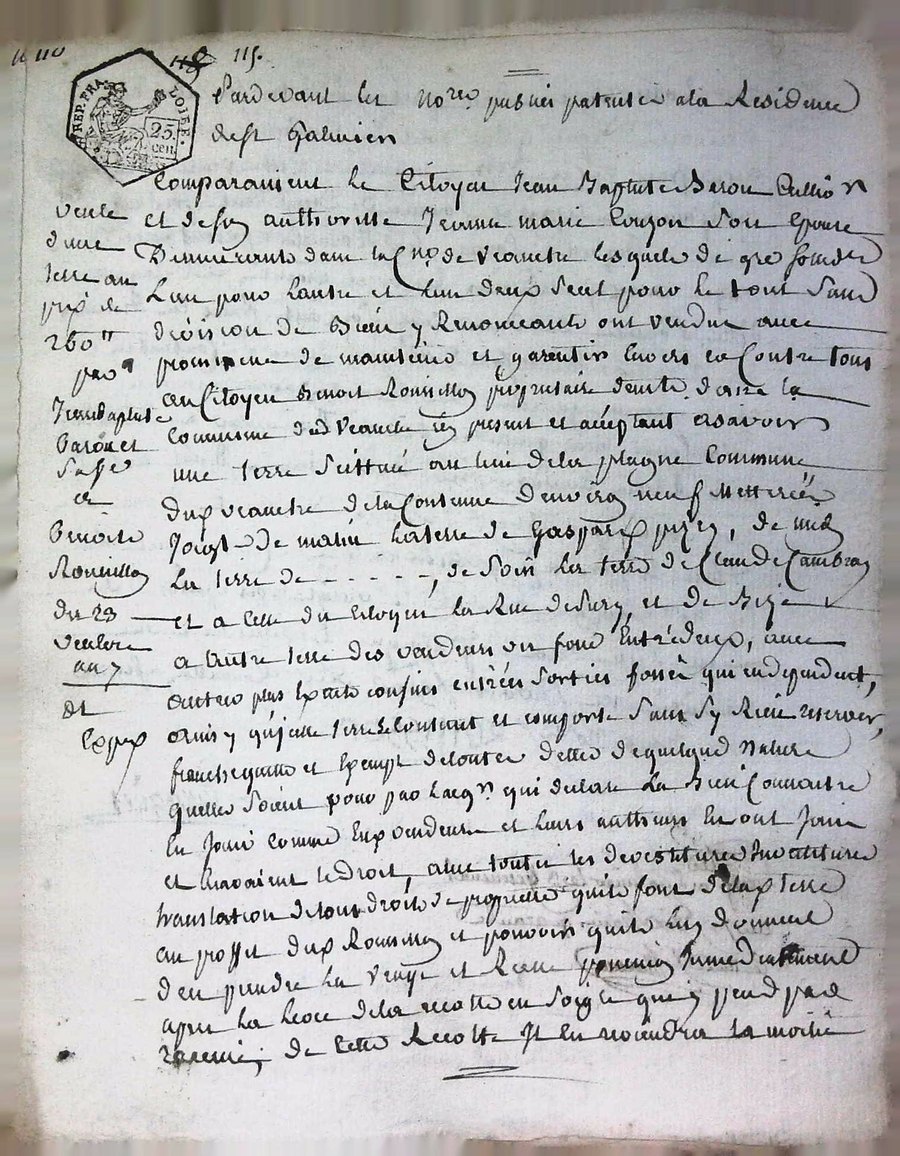 115.
REP. FRA.
LOIRE.
25.
CEN.
Pardevant les No.res publics patentés a la Residence
de St Galmier
Comparaissent le Citoyen Jean Baptiste Baron
et de son authorité Jeanne marie Couzon Son Epouse
Demeurants dans la de Veauche lesquels de gré
L'un pour L'autre et L'un deux Seul pour le tout Sans
division de Bien y Renonceants ont vendus avec
promesse de maintenir et garentir Envers et Contre tous
au Citoyen Benoit Rousillon proprietaire de la
Commune de Veauche present et acceptant asavoir
une terre Scittuée au lieu de la plagne Commune
dud Veauche de la Contenue d'environ neuf Metterées
Joignt de matin La terre de Gaspard, de midy
La terre de - - - - - , de Soir La terre de Claude
et a celle du Citoyen La Rue de Sury, et de Bize
a autre terre des vendeurs un fossé Entredeux, avec
autres plus Exacts confins entrées Sorties fossés qui en dependent,
ainsy qu'elle Se Contient et comporte Sans S'y Rien reserver,
franche quitte et Exempt de toutes dettes de quelque Nature
quelles Soient pour par Lacq.r qui declare La Bien Connoitre
En Jouir comme Eux vendeurs et leurs autheurs En ont Joui
et Avoient le Droit, avec toutes les devestitures Investitures
translation de tous droits de propriété quils font de lad terre
au proffit dud Rousillon et pouvoir quils luy donnent
d'en prendre La Vraye et Reelle possession Immediatement
apres La Levée de la recolte en Soigle quy pend par
racines, de Cette Recolte Il En reviendra La moitié
vente
d'une
terre au
prix de
260 tt
par
Jean Baptiste
Baron et
Sa fe
a
Benoit
Rousillon
du 23
Ventose
an 7
dt
Exped